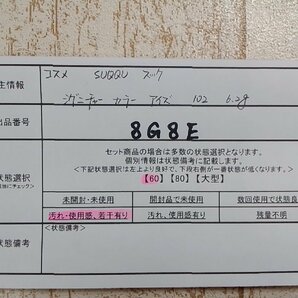 コスメ SUQQU スック
主情報
シグニチャー カラー アイズ 102 6.2g
出品番号 8G8E
セット商品の場合は多数の状態選択となります。
個別情報は状態備考に記載します。
状態選択
<下記状態選択は左上より良好で、下段右側が一番状態が低くなります。>
【60】【80】【大型】
未開封・未使用 開封品で未使用 数回使用で状態良
汚れ・使用感、若干有り 汚れ、使用感有り 残量不明
<状態備考>
状態備考